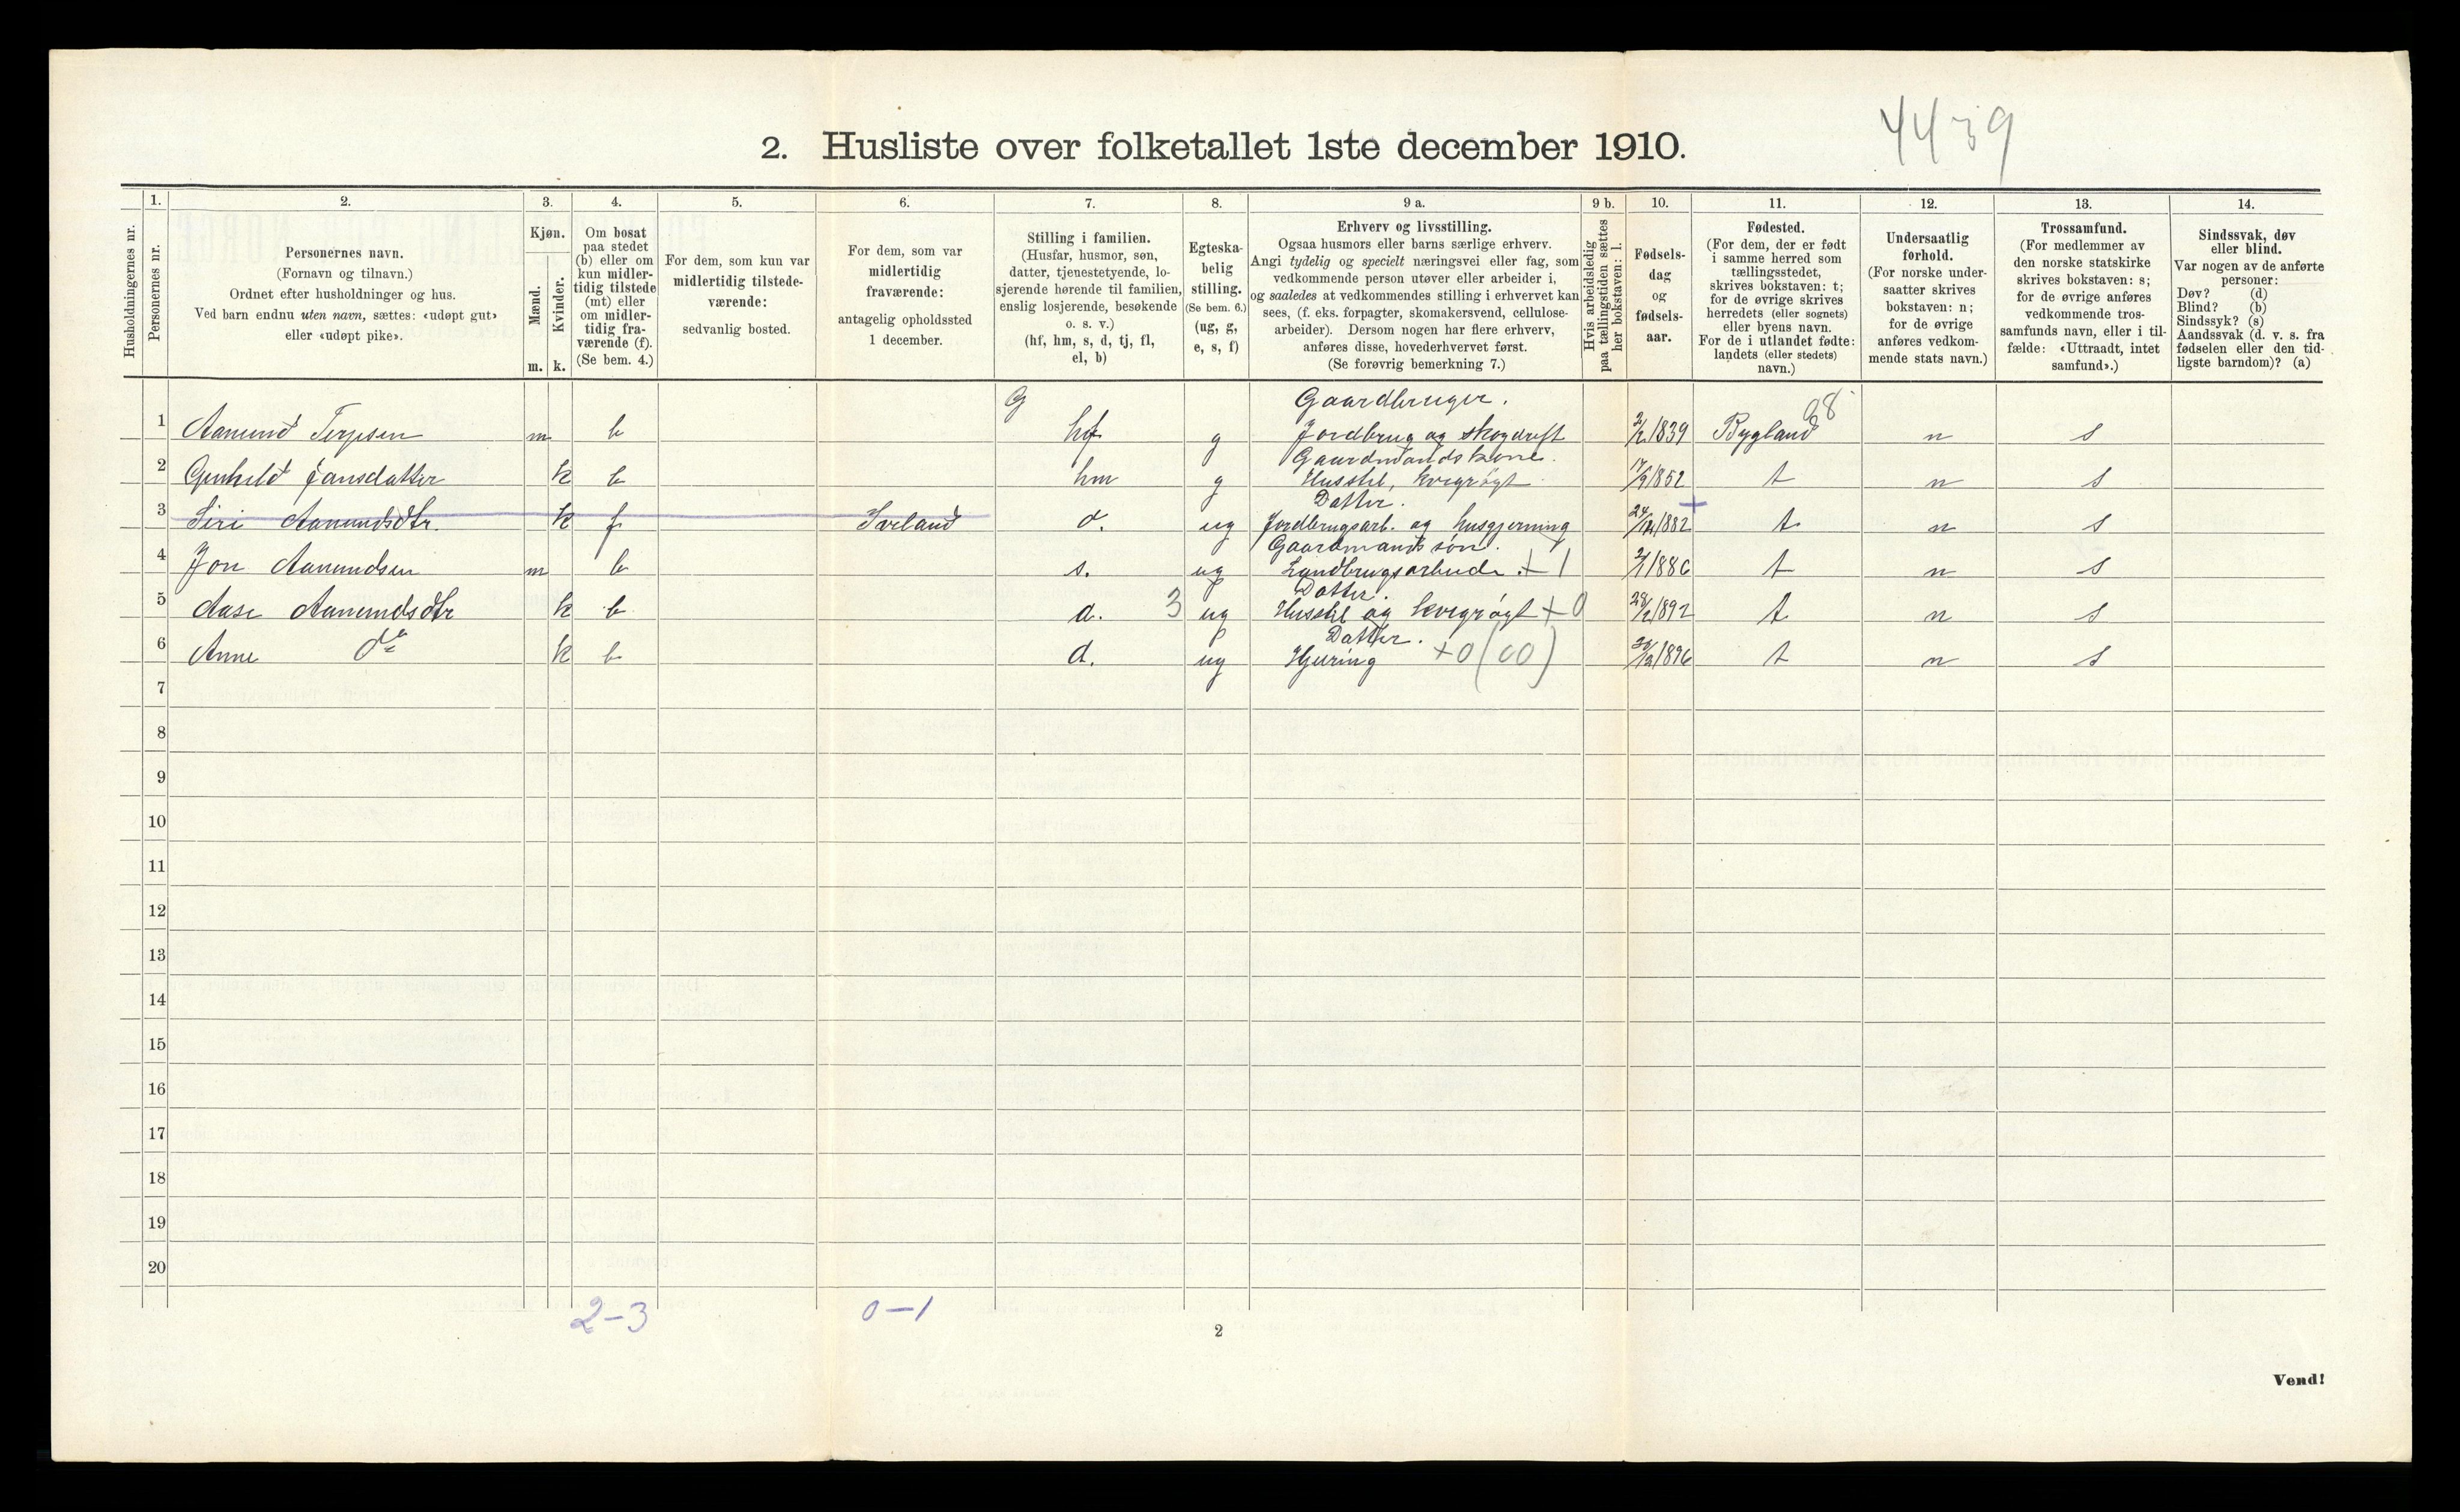 4439
2. Husliste over folketallet 1ste december 1910.
Husholdningernes nr.
1.
Personernes nr.
2.
Personernes navn.
(Fornavn og tilnavn.)
Ordnet efter husholdninger og hus.
Ved barn endnu uten navn, sættes: «udøpt gut»
eller «udøpt pike».
3.
Kjøn.
Mænd.
Kvinder.
m. k.
4.
Om bosat
paa stedet
(b) eller om
kun midler-
tidig tilstede
(mt) eller
om midler-
tidig fra-
værende (f).
(Se bem. 4.)
5.
For dem, som kun var
midlertidig tilstede-
værende:
sedvanlig bosted.
6.
For dem, som var
midlertidig
fraværende:
antagelig opholdssted
1 december.
7.
Stilling i familien.
(Husfar, husmor, søn,
datter, tjenestetyende, lo-
sjerende hørende til familien,
enslig losjerende, besøkende
o. s. v.)
(hf, hm, s, d, tj, fl,
el, b)
8.
Egteska-
belig
stilling.
(Se bem. 6.)
(ug, g,
e, s, f)
9 a.
Erhverv og livsstilling.
Ogsaa husmors eller barns særlige erhverv.
Angi tydelig og specielt næringsvei eller fag, som
vedkommende person utøver eller arbeider i,
og saaledes at vedkommendes stilling i erhvervet kan
sees, (f. eks. forpagter, skomakersvend, cellulose-
arbeider). Dersom nogen har flere erhverv,
anføres disse, hovederhvervet først.
(Se forøvrig bemerkning 7.)
9 b.
Hvis arbeidsledig
paa tællingstiden sættes
her bokstaven: l.
10.
Fødsels-
dag
og
fødsels-
aar.
11.
Fødested.
(For dem, der er født
i samme herred som
tællingsstedet,
skrives bokstaven: t;
for de øvrige skrives
herredets (eller sognets)
eller byens navn.
For de i utlandet fødte:
landets (eller stedets)
navn.)
12.
Undersaatlig
forhold.
(For norske under-
saatter skrives
bokstaven: n;
for de øvrige
anføres vedkom-
mende stats navn.)
13.
Trossamfund.
(For medlemmer av
den norske statskirke
skrives bokstaven: s;
for de øvrige anføres
vedkommende tros-
samfunds navn, eller i til-
fælde: «Uttraadt, intet
samfund».)
14.
Sindssvak, døv
eller blind.
Var nogen av de anførte
personer:
Døv? (d)
Blind? (b)
Sindssyk? (s)
Aandssvak (d. v. s. fra
fødselen eller den tid-
ligste barndom)? (a)
G Gaardbruger. 98
1 Aanund Terjesen m b hf g Jordbrug og skogdrift 2/2 1839 Bygland n s
Gaardmandskone.
2 Gunhild Jonsdatter k b hm g Husstel, kregrøgt 17/9 1852 t n s
Datter.
3 Siri Aanundsdtr. k f d. ug Jordbrugsarb. og husgjerning 24/12 1882 t n s
Gaardmands søn.
4 Jon Aanundsen m b s. ug Landbrugsarbeide + 1 t n s
Datter.
5 Aase Aanundsdtr k b d. 3 ug Husstel og kregrøgt + 0 28/2 1892 t n s
Datter.
6 Anne do k b d. ug Hjuring +0 (00) 1896 t n s
7
8
9
10
11
12
13
14
15
16
17
18
19
20
2-3 0-1
2
Vend!